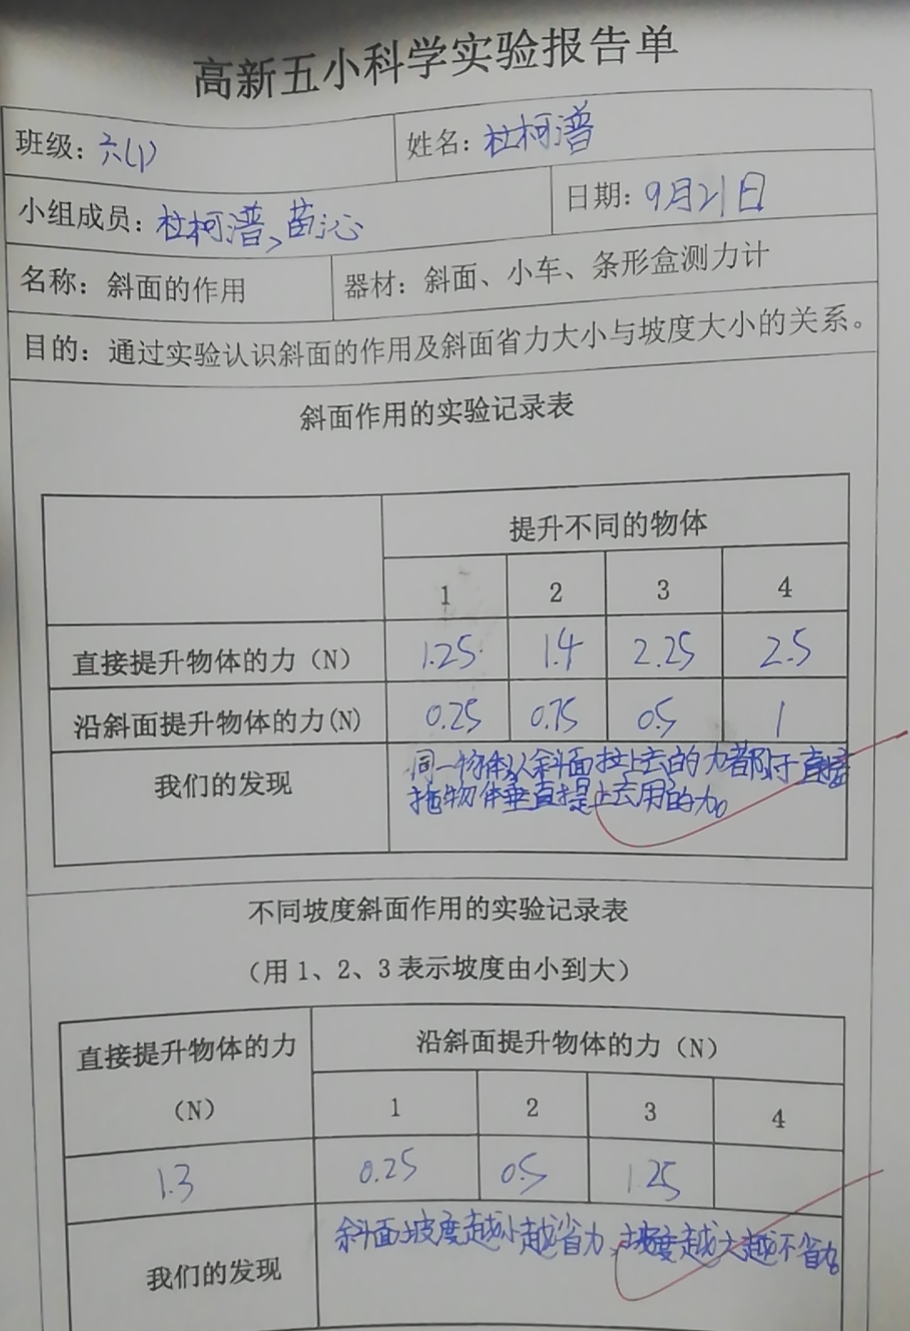 高新五小科学实验报告单
班级：六(1) 姓名：杜柯潽
小组成员：杜柯潽、苗沁 日期：9月21日
名称：斜面的作用 器材：斜面、小车、条形盒测力计
目的：通过实验认识斜面的作用及斜面省力大小与坡度大小的关系。
斜面作用的实验记录表
提升不同的物体
1 2 3 4
直接提升物体的力（N） 1.25 1.4 2.25 2.5
沿斜面提升物体的力(N) 0.25 0.75 0.5 1
我们的发现
同一物体从斜面拉上去的力都小于
物体垂直提上去用的力。
不同坡度斜面作用的实验记录表
（用1、2、3表示坡度由小到大）
直接提升物体的力
（N）
沿斜面提升物体的力（N）
1 2 3 4
1.3 0.25 0.5 1.25
我们的发现
斜面坡度越小越省力，坡度越大越不省力。